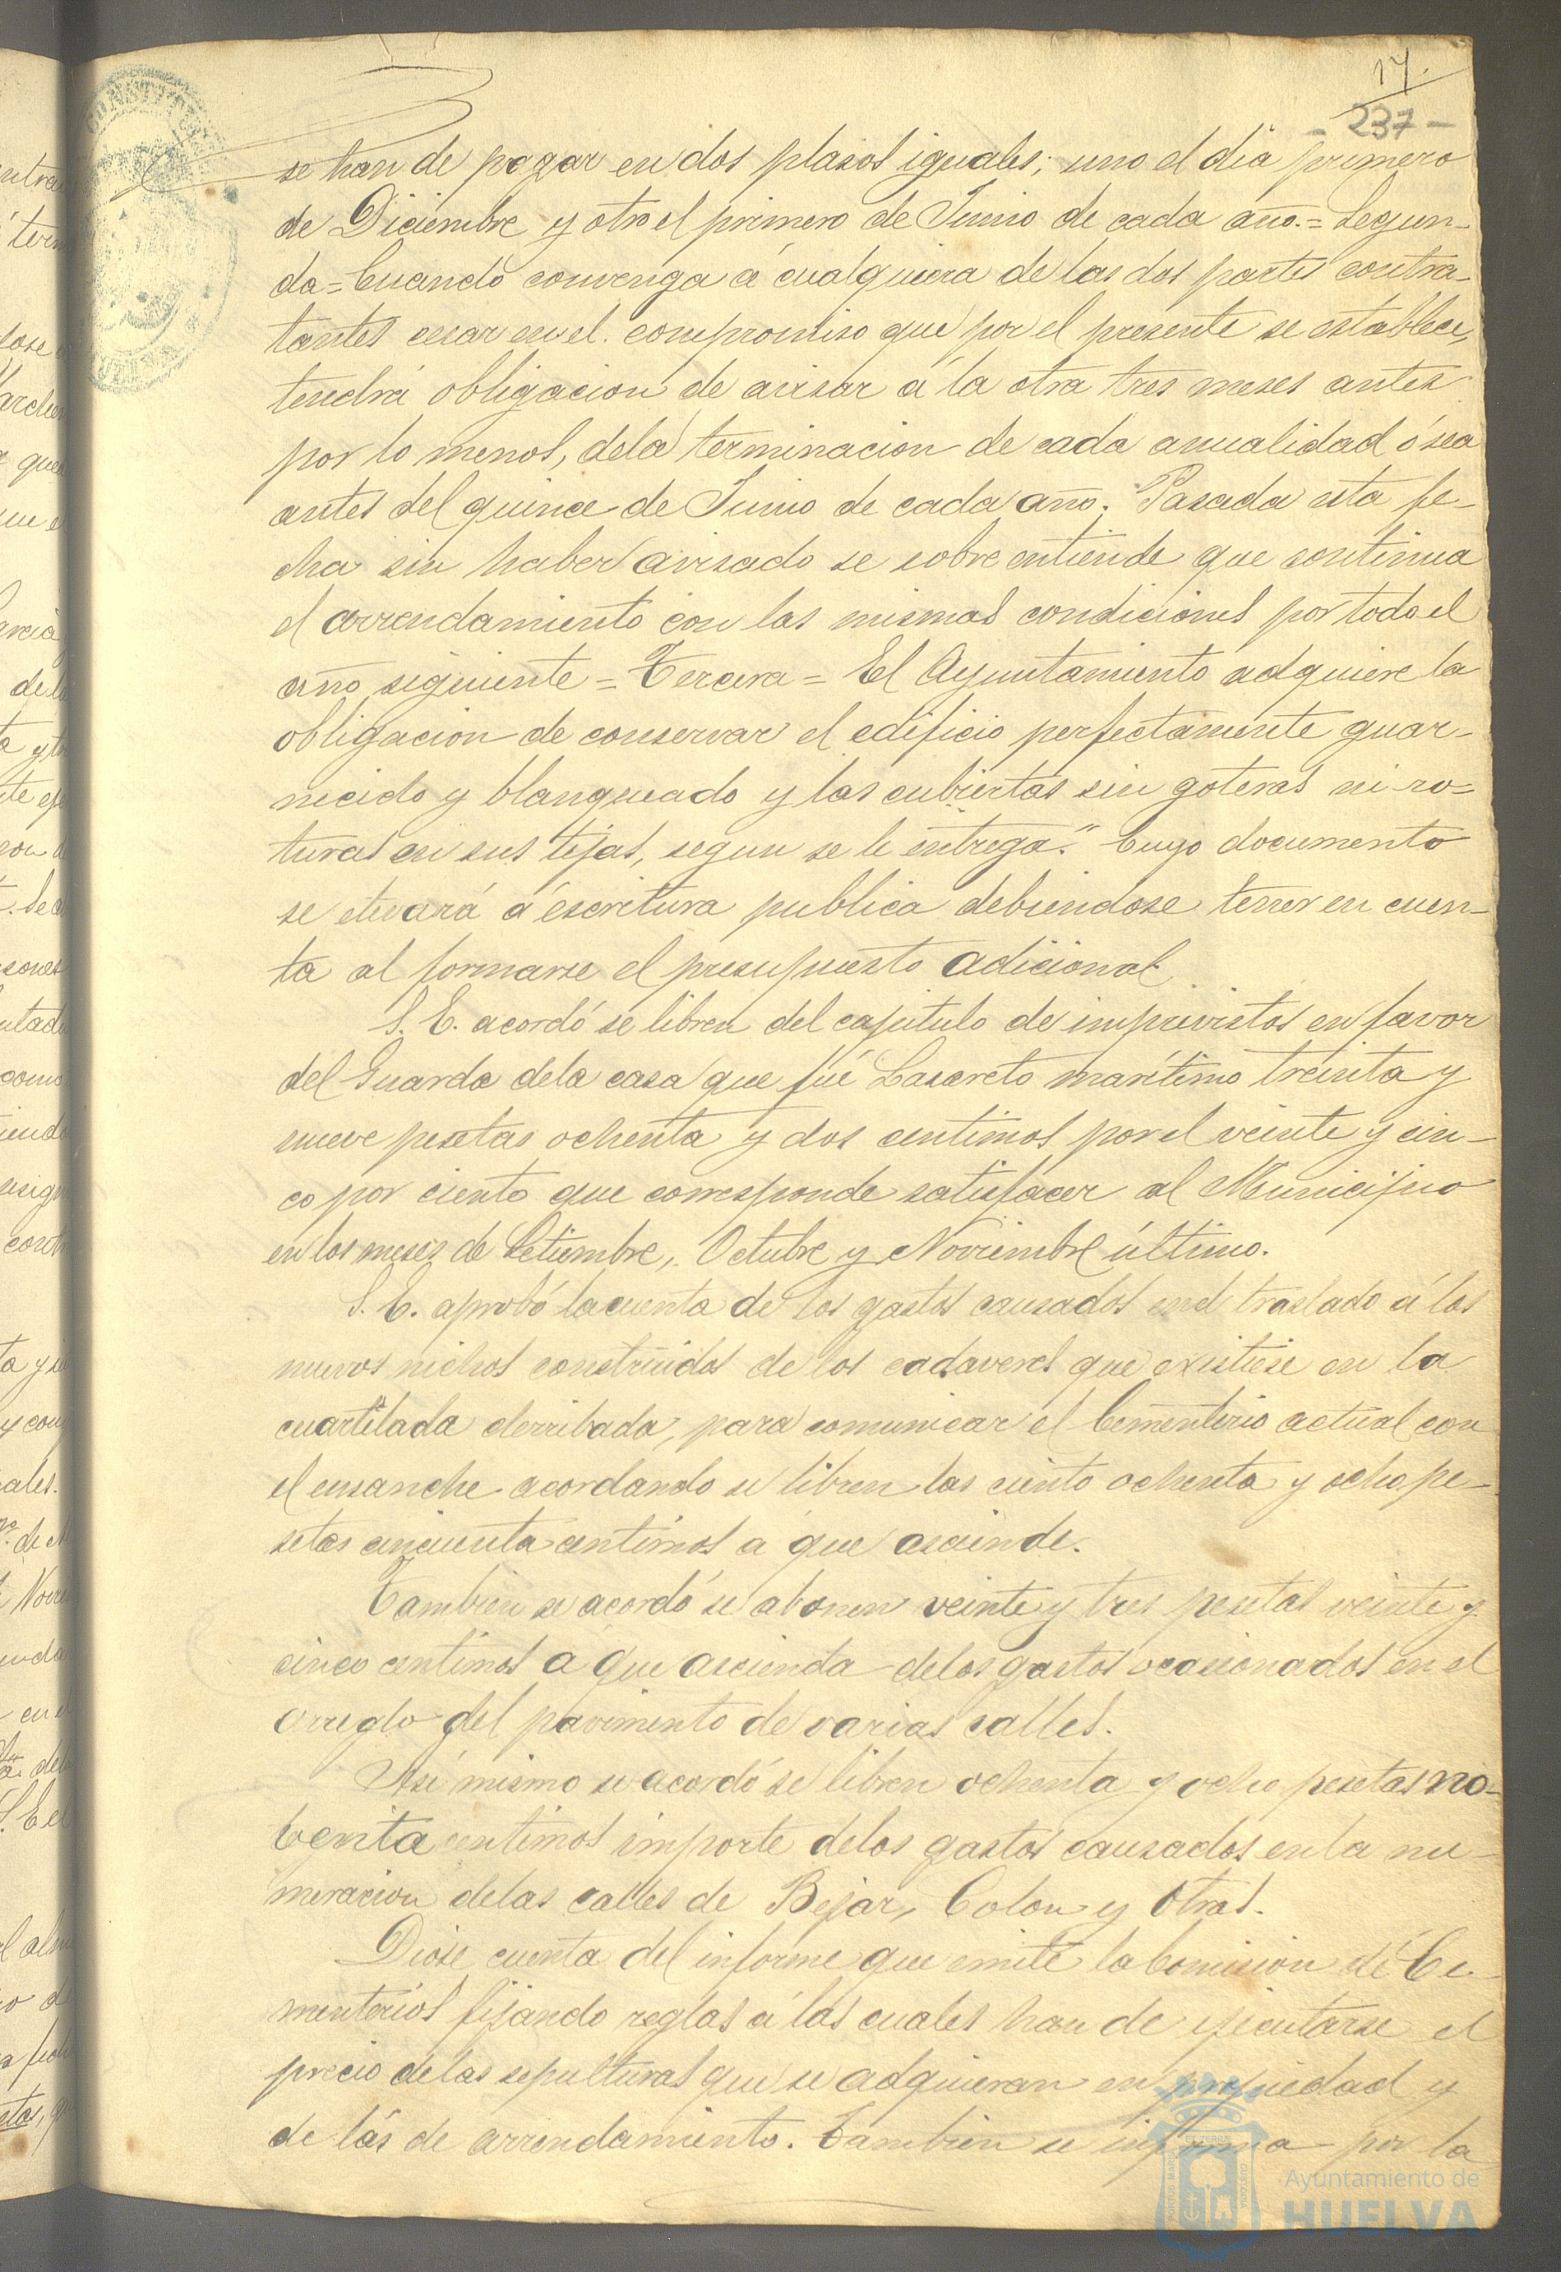 17.
- 237 -
se han de pagar en dos plasos iguales; uno el dia primero
de Diciembre y otro el primero de Junio de cada año.= Segun-
da= Cuando convenga á cualquiera de las dos partes contra-
tantes cesar en el compromiso que por el presente se establece,
tendrá obligacion de avisar á la otra tres meses antes
por lo menos, dela terminacion de cada anualidad ó sea
antes del quince de Junio de cada año. Pasada esta fe-
cha sin haber avisado se sobre entiende que continua
el arrendamiento con las mismas condiciones por todo el
año siguiente = Tercera = El Ayuntamiento adquiere la
obligacion de conservar el edificio perfectamente guar-
necido y blanqueado y las cubiertas sin goteras ni ro=
turas en sus tejas, segun se le entrega." Cuyo documento
se elevará á escritura publica debiendose tener en cuen-
ta al formarse el presupuesto adicional
S. E. acordó se libren del capitulo de imprevistos en favor
del Guarda dela casa que fué Lasareto marítimo treinta y
nueve pesetas ochenta y dos centimos por el veinte y cin-
co por ciento que corresponde satisfacer al Municipio
en los meses de Setiembre, Octubre y Noviembre último.
S. E. aprobó la cuenta de los gastos causados en el traslado á los
nuevos nichos construidos de los cadaveres que existiese en la
cuartilada derribada, para comunicar el Cementerio actual con
el ensanche acordando se libren las ciento ochenta y ocho pe-
setas cincuenta centimos a que asciende.
Tambien se acordó se abonen veinte y tres pesetas veinte y
cinco centimos á que ascienda delos gastos ocasionados en el
arreglo del pavimento de varias calles.
Asi mismo se acordó se libren ochenta y ocho pesetas no-
benta centimos importe delos gastos causados en la nu-
meracion delas calles de Bejar, Colon y otras.
Diose cuenta del informe que emite la Comision de Ce-
menterios fijando reglas á las cuales han de ejecutarse el
precio delas sepulturas que se adquieran en propiedad y
de las de arrendamiento. Tambien se informa por la
Ayuntamiento de
HUELVA